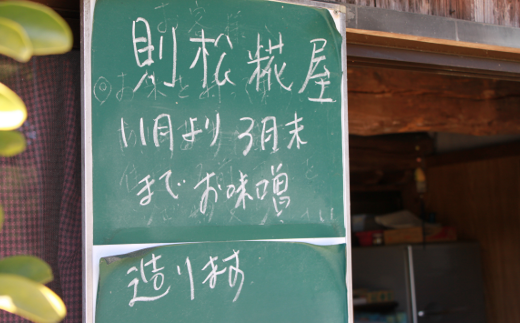 則松糀屋
11月より3月末
までお味噌
造ります